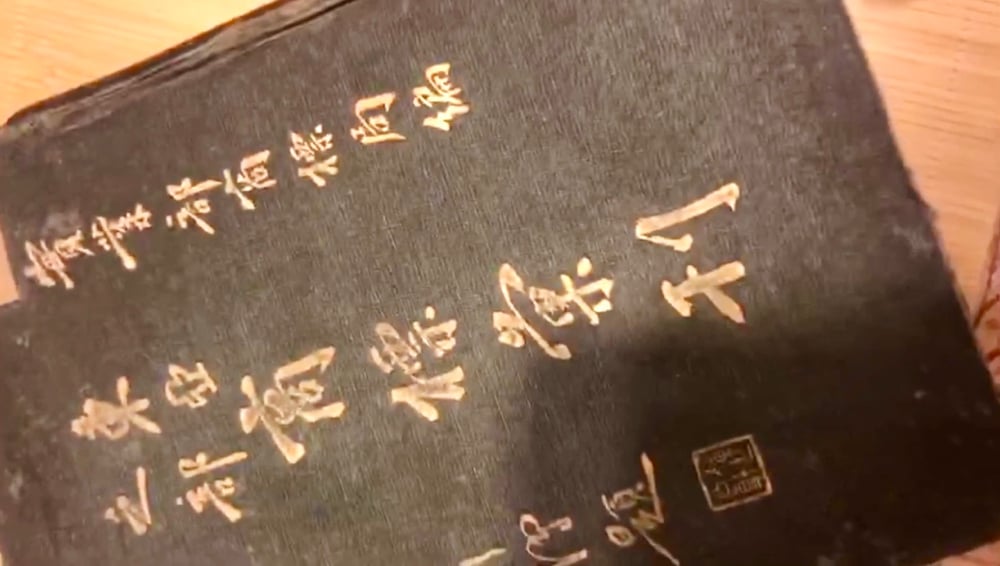 實業部商標局編
東亞之部商標彙刊
題